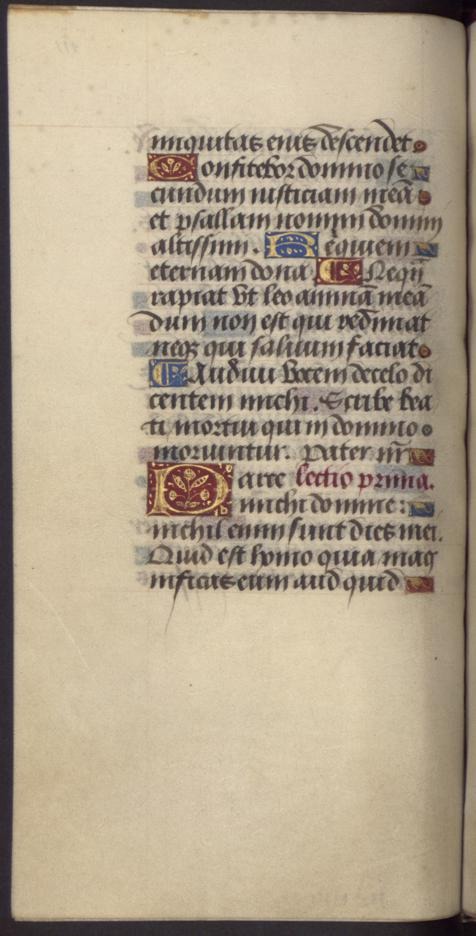 iniquitas eius descendet
Confitebor domino se
cundum iusticiam meā
et psallam nomini domini
altissimi. Requiem
eternam dona Nequā
rapiat vt leo animā meā
dum non est qui redimat
neqꝫ qui saluum faciat
Audiui vocem de celo di
centem michi. Scribe bea
ti mortui qui in domino
moriuntur. Pater nr̄
Parce lectio prima.
michi domine:
nichil enim sunt dies mei.
Quid est homo quia mag
nificas eum aud quid